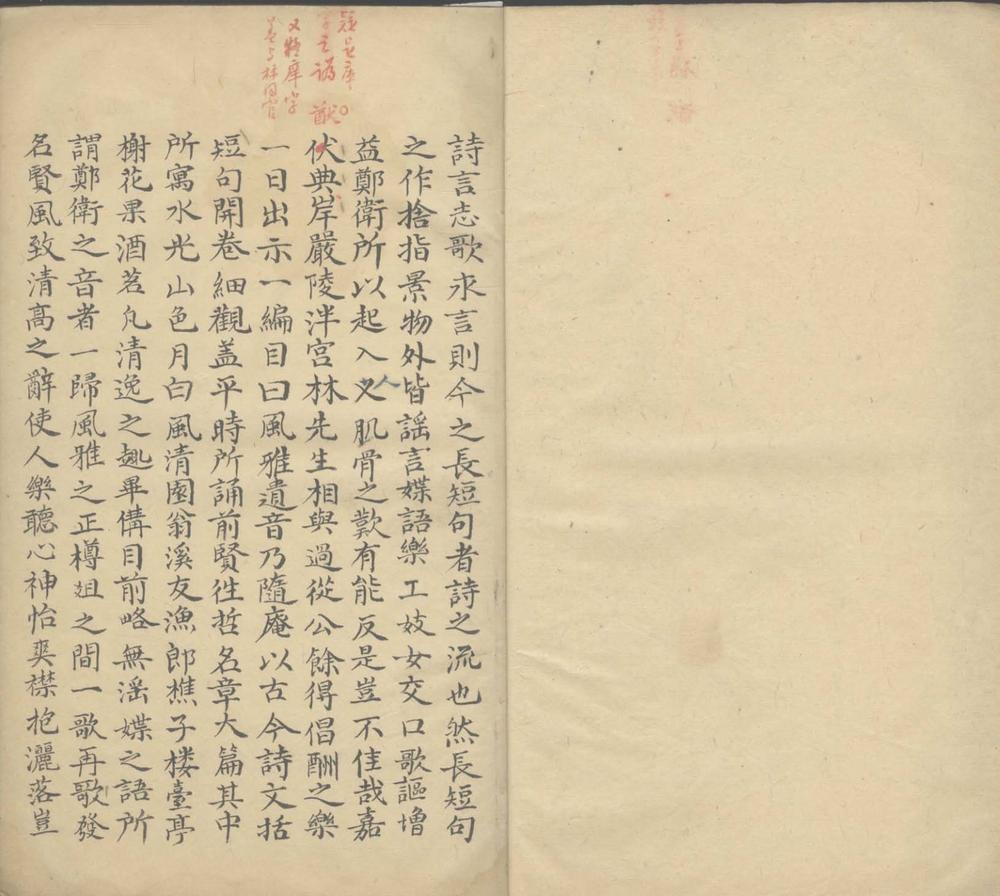 疑是庠
字之譌 猷
又疑庠字
詩言志歌永言則今之長短句者詩之流也然長短句
之作捨指景物外皆謡言媟語樂工妓女交口歌謳增
益鄭衛所以起入人义肌骨之歎有能反是豈不佳哉嘉
伏典岸嚴陵泮宫林先生相與過從公餘得倡酬之樂
一日出示一編目曰風雅遺音乃隨庵以古今詩文括
短句開卷細觀盖平時所誦前賢徃哲名章大篇其中
所寓水光山色月白風清園翁溪友漁郎樵子楼臺亭
榭花果酒茗凡清逸之趣畢備目前略無滛媟之語所
謂鄭衛之音者一歸風雅之正樽俎之間一歌再歌發
名賢風致清高之辭使人樂聽心神怡奭襟抱灑落豈